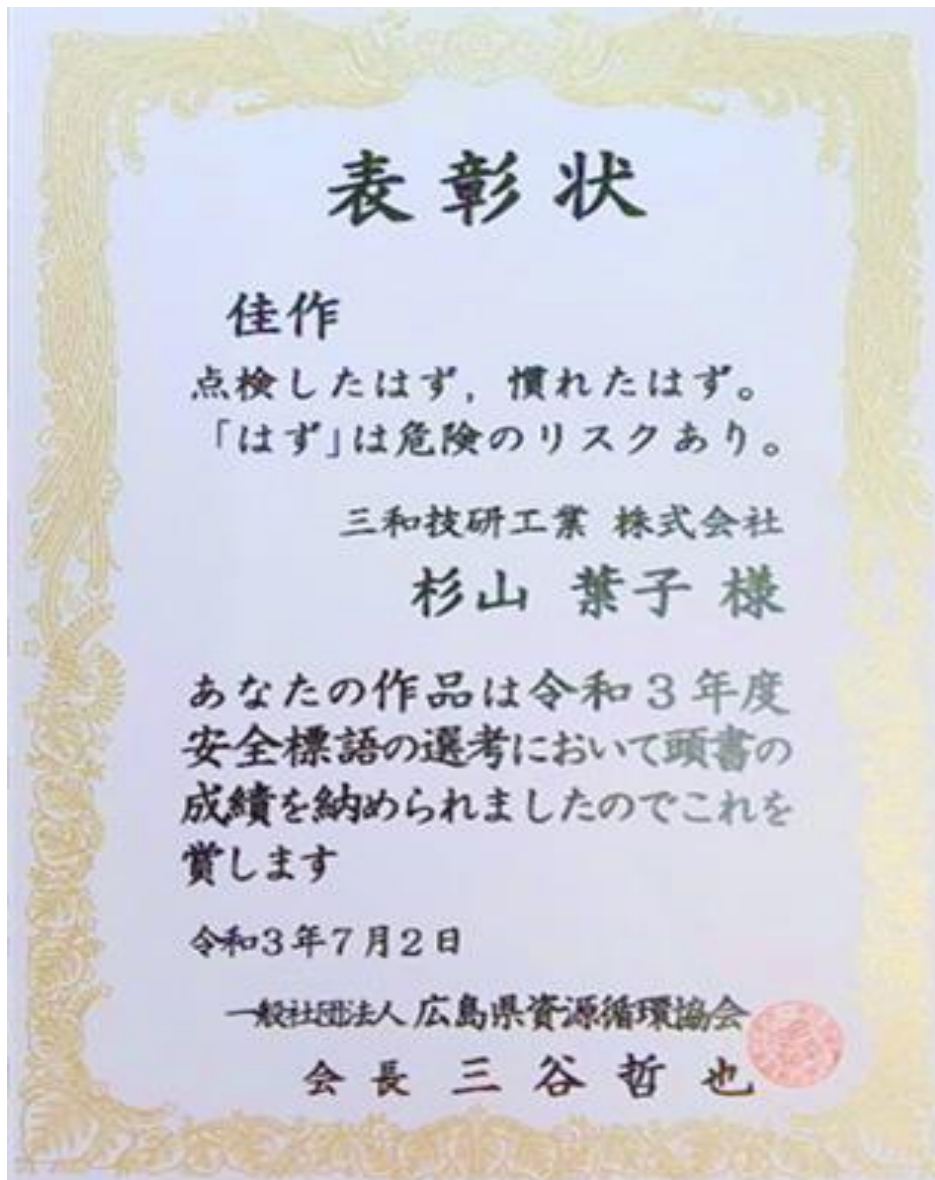 表彰状
佳作
点検したはず，慣れたはず。
「はず」は危険のリスクあり。
三和技研工業 株式会社
杉山 葉子 様
あなたの作品は令和3年度
安全標語の選考において頭書の
成績を納められましたのでこれを
賞します
令和3年7月2日
一般社団法人 広島県資源循環協会
会長 三谷哲也